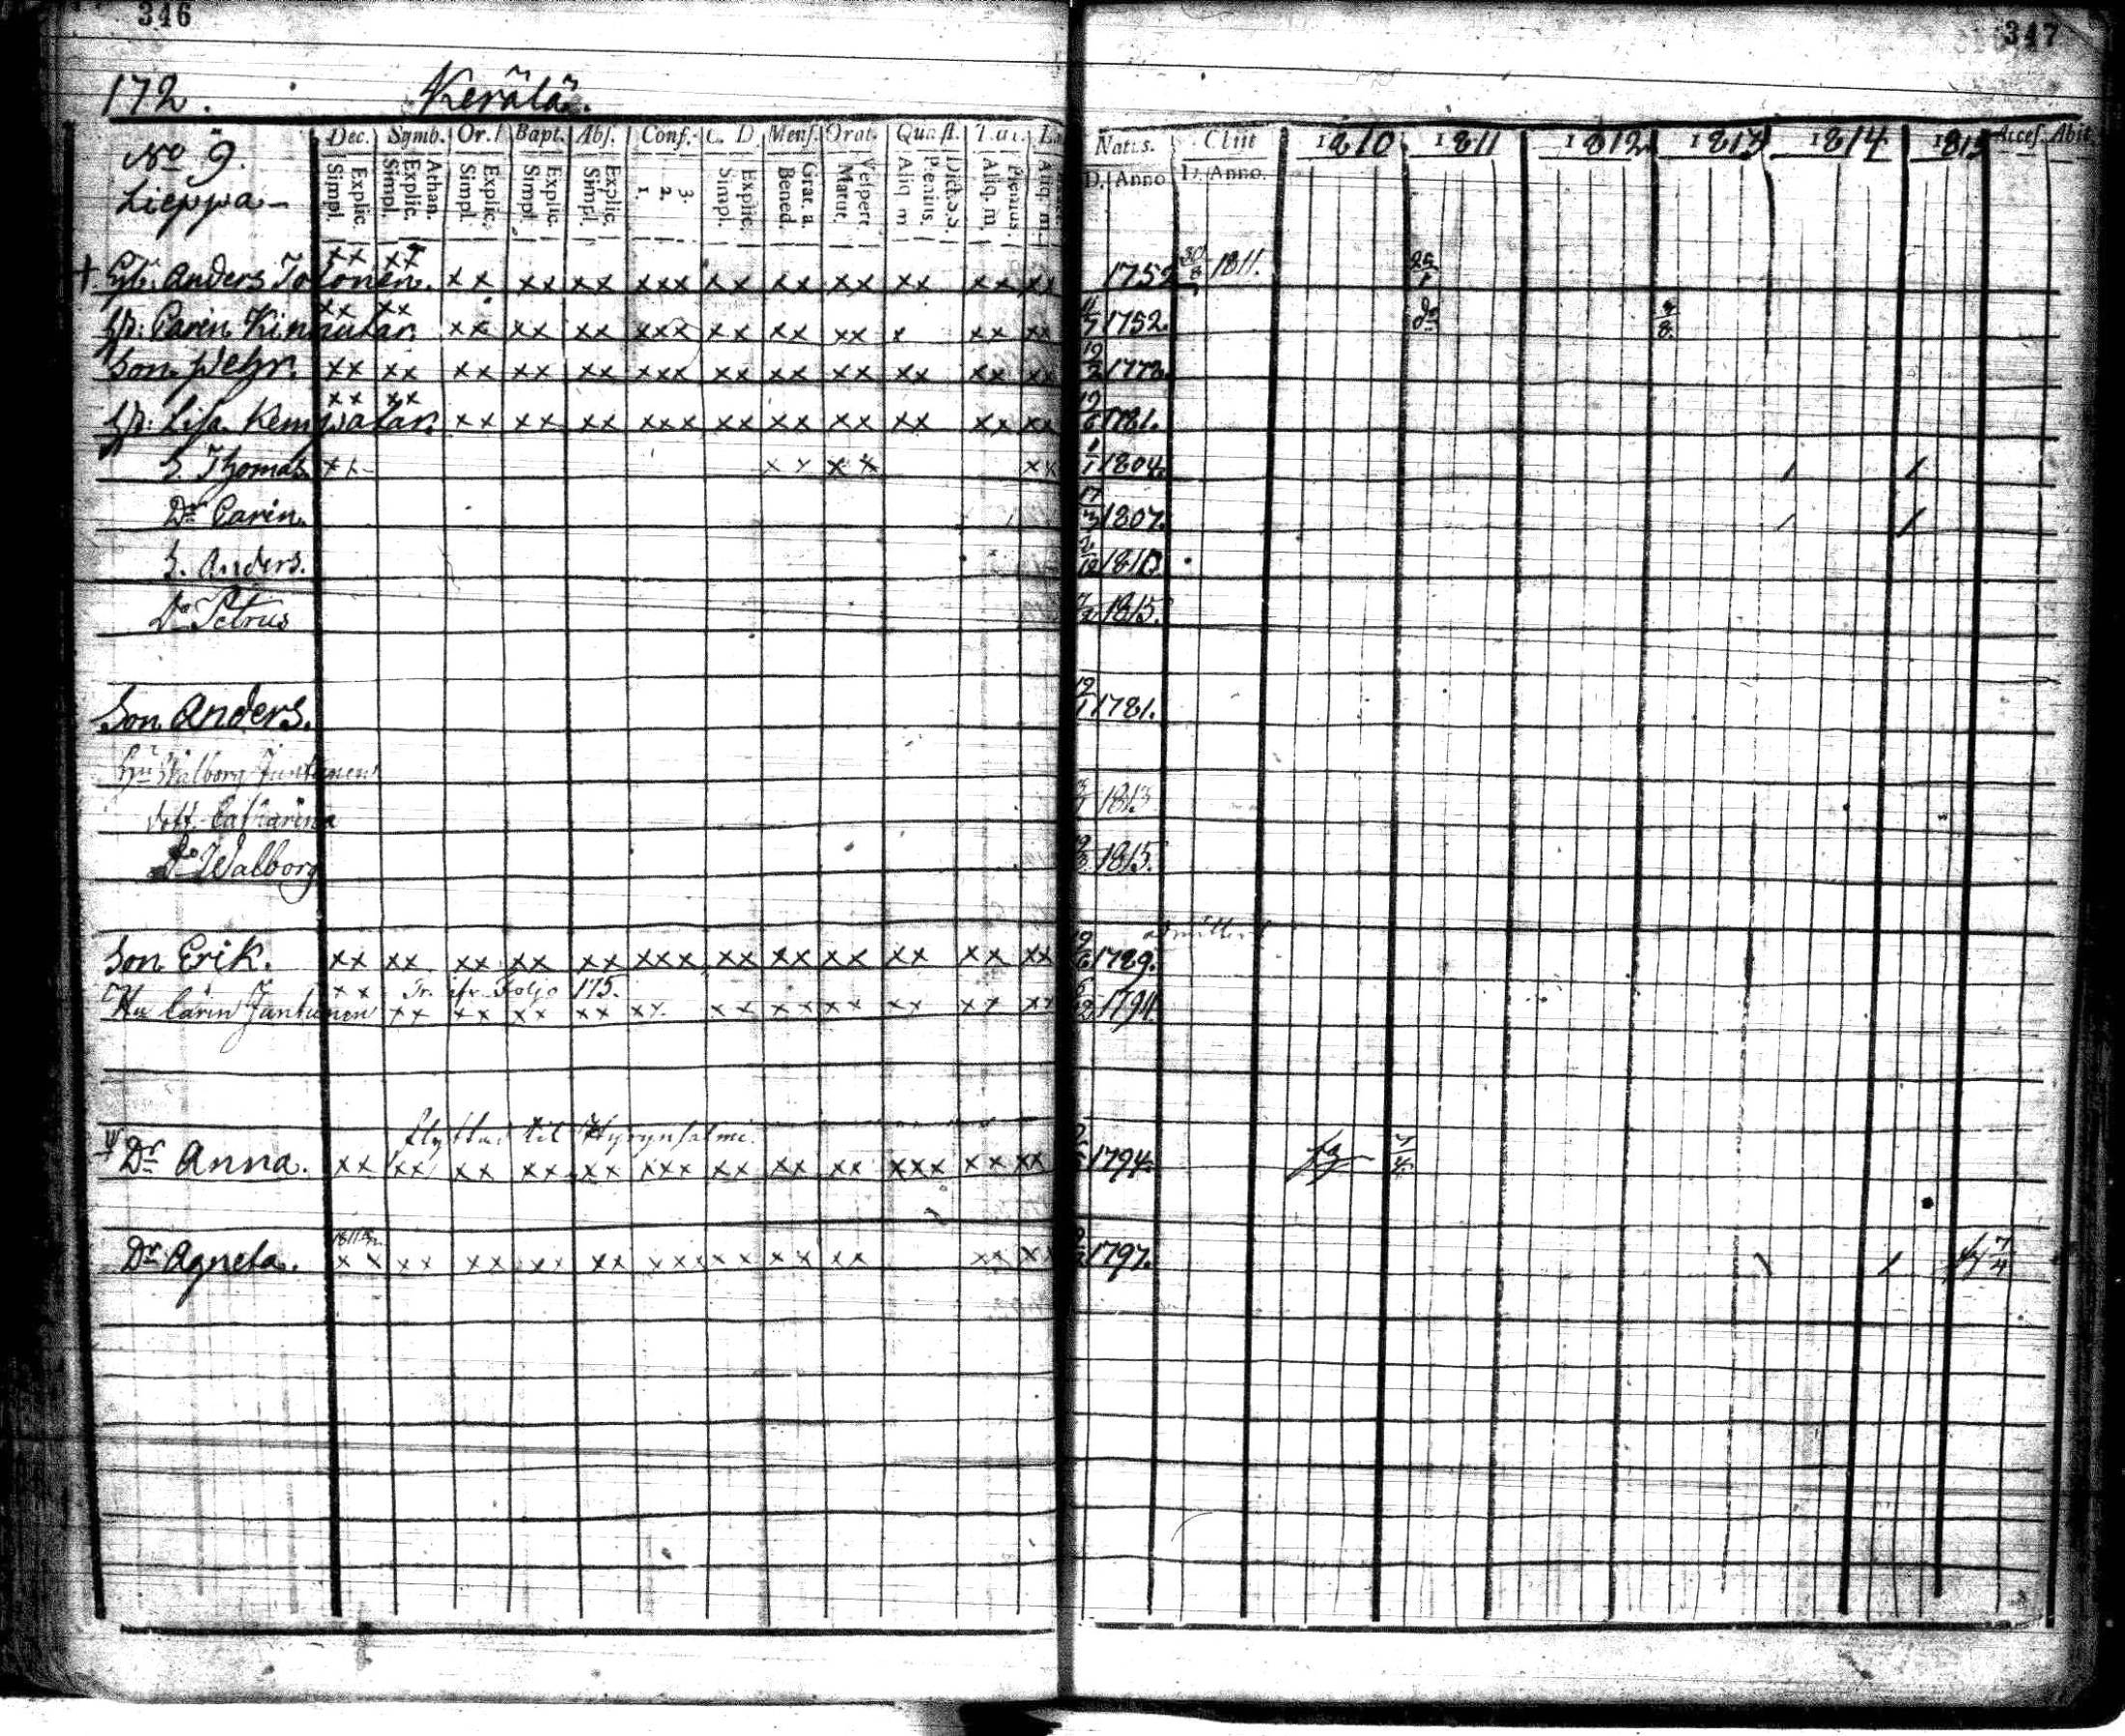 346
347
172. Kerälä.
No 9.
Lieppa
Dec. Symb. Or. Bapt. Abs. Conf. C. D. Mens. Orat. Quæst. Nat.s. 1810 1811 1812 1813 1814 1815 Acces. Abit.
Simpl. Explic. Simpl. Explic. Athan. Simpl. Explic. Simpl. Explic. Simpl. Explic. 1. 2. 3. Simpl. Explic. Bened. Grat. a. Matut. Vespert. Aliq. m. Plenius. Dict. s.s. Aliq. m. Plenius. Aliq. m. D. Anno D. Anno.
† Anders Tolonen. xx xx xx xx xx xxx xx xx xx xx xx xx 1752 30/8 1811. 25/1
Carin Kinnular. xx xx xx xx xx xxx xx xx xx x xx xx 1752. do
Son. Pehr. xx xx xx xx xx xxx xx xx xx xx xx xx 1773.
Lisa Kempatar. xx xx xx xx xx xxx xx xx xx xx xx xx 1781.
S. Thomas xx xx xx xx 1/1 1804.
Dr Carin. 17/3 1807.
S. Anders. 1810.
Do Petrus 1815.
Son Anders. 12/1 1781.
Hu Walborg Juntunen
dott. Catharina 1813
Do Walborg 1815.
admitterad
Son Erik. xx xx xx xx xx xxx xx xx xx xx xx xx 1789.
Tr. ifr. Foljo 175.
Hu Carin Juntunen xx xx xx xx xx xx xx xx xx xx xx xx 1791.
flyttad til Hyrynsalmi.
Dr Anna. xx xx xx xx xx xxx xx xx xx xxx xx xx 1794.
Dr Agneta. xx xx xx xx xx xxx xx xx xx xx xx 1797. 7/4